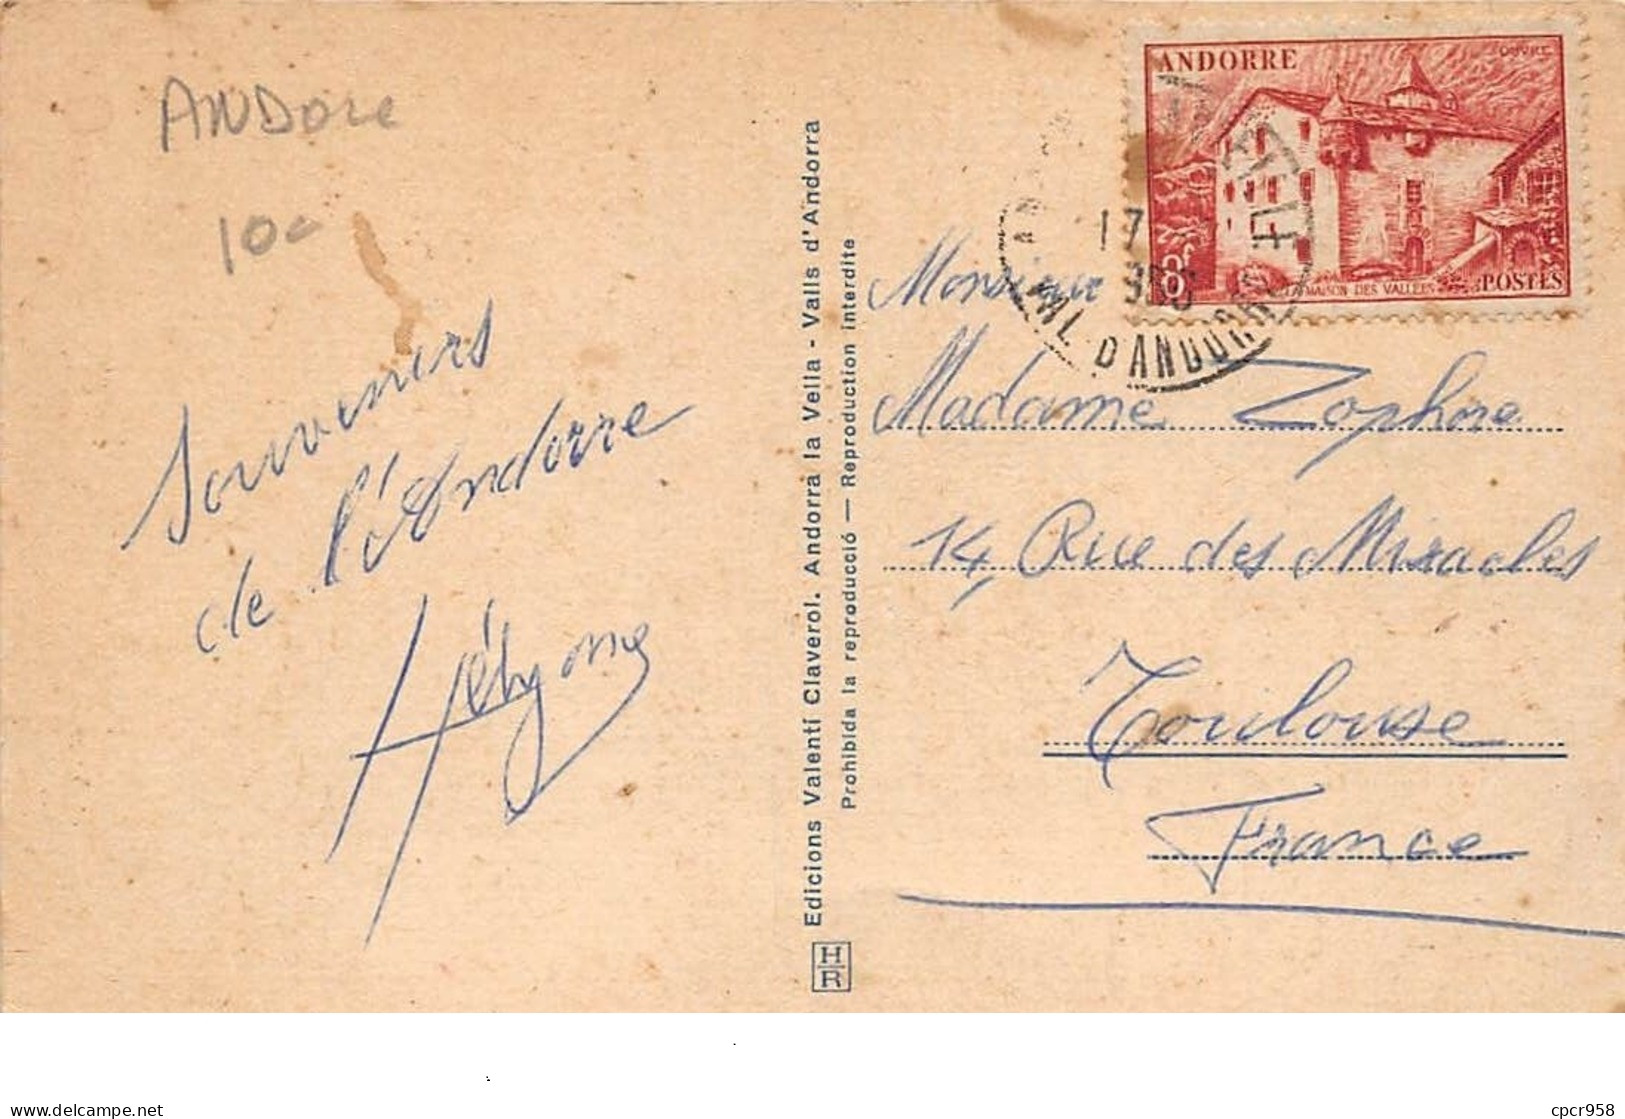 ANDORE
10c
Souvenirs
de l'Andorre
Edicions Valentí Claverol. Andorra la Vella - Valls d'Andorra
Prohibida la reproducció — Reproduction interdite
H
R
ANDORRE
8f
LA MAISON DES VALLEES
POSTES
17
VAL D'ANDORRE
Monsieur
Madame Zophore
14, Rue des Miracles
Toulouse
France
delcampe.net
cpcr958